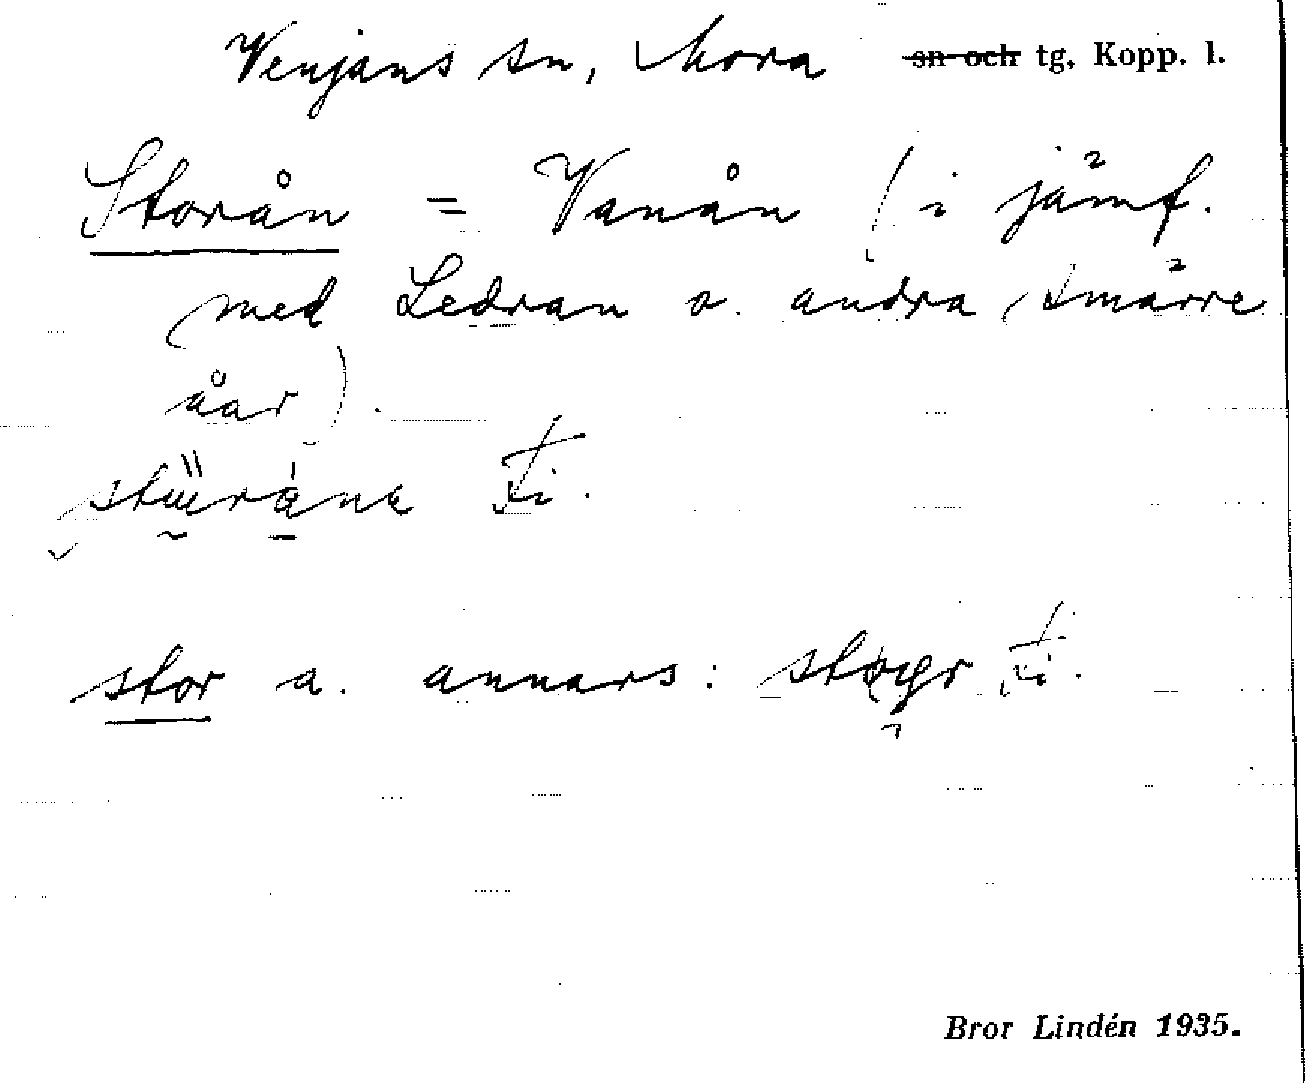 Venjans sn, Mora sn och tg, Kopp. l.
Storån = Vanån (i jämf.
med Ledran o. andra smärre
åar).
ti.
stor a. annars: ti.
Bror Lindén 1935.